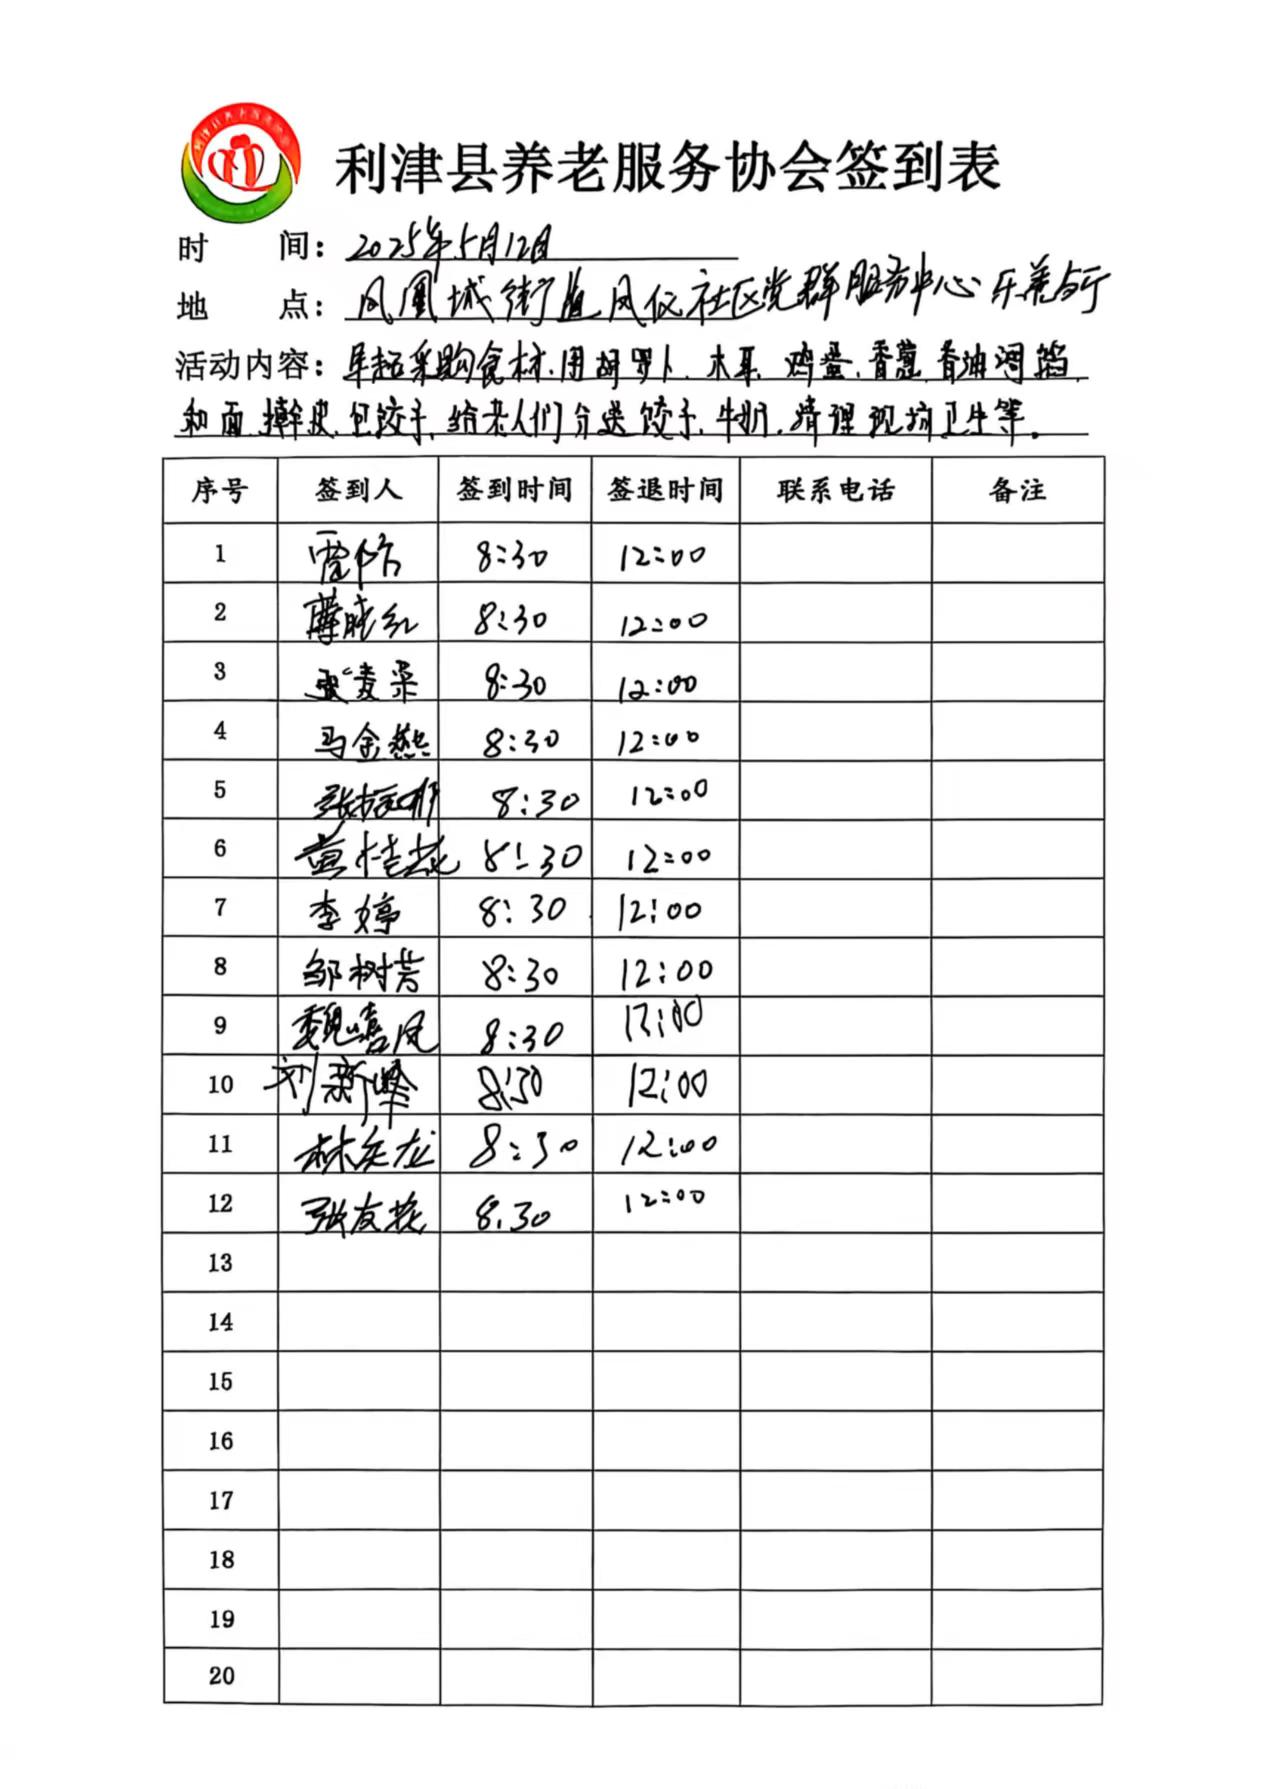 利津县养老服务协会签到表
时 间：2025年5月12日
地 点：凤凰城街道凤仪社区党群服务中心乐养餐厅
活动内容：早起采购食材、用胡萝卜、木耳、鸡蛋、香葱、香油调馅、
和面、擀皮、包饺子、给老人们分送饺子、牛奶、清理现场卫生等。
序号 签到人 签到时间 签退时间 联系电话 备注
1 8:30 12:00
2 薄晓红 8:30 12:00
3 8:30 12:00
4 马金燕 8:30 12:00
5 8:30 12:00
6 黄桂花 8:30 12:00
7 李婷 8:30 12:00
8 邹树芳 8:30 12:00
9 魏嘻凤 8:30 12:00
10 刘新峰 8:30 12:00
11 8:30 12:00
12 张友花 8.30 12:00
13
14
15
16
17
18
19
20